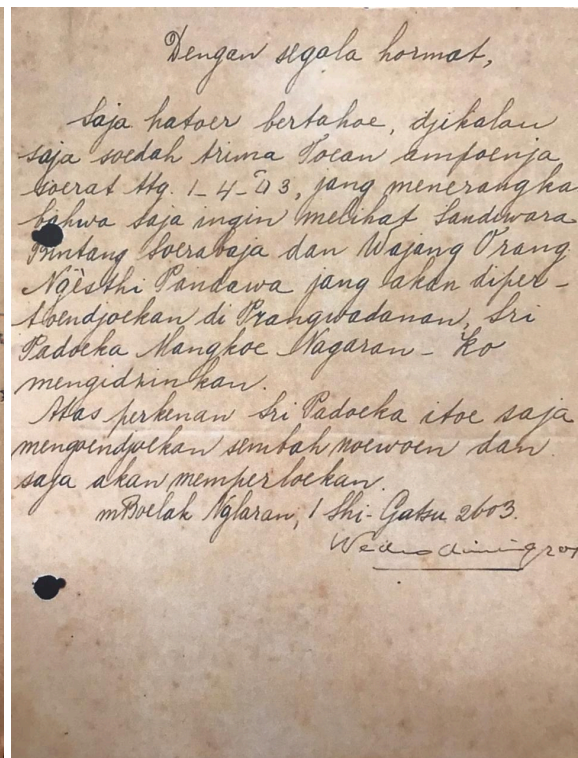 Dengan segala hormat,
Saja hatoer bertahoe, djikalau
saja soedah trima Toean ampoenja
soerat ttg. 1-4-'03, jang menerangka
bahwa saja ingin melihat Sandiwara
Bintang Soerabaja dan Wajang Orang
Ngèsthi Pandawa jang akan diper-
toendjoekan di Prangwadanan, Sri
Padoeka Mangkoe Nagaran - Ko
mengidzinkan.
Atas perkenan Sri Padoeka itoe saja
mengoendjoekan sembah noewoen dan
saja akan memperloekan.
mBoelak Nglaran, 1 Shi-Gatsu 2603.